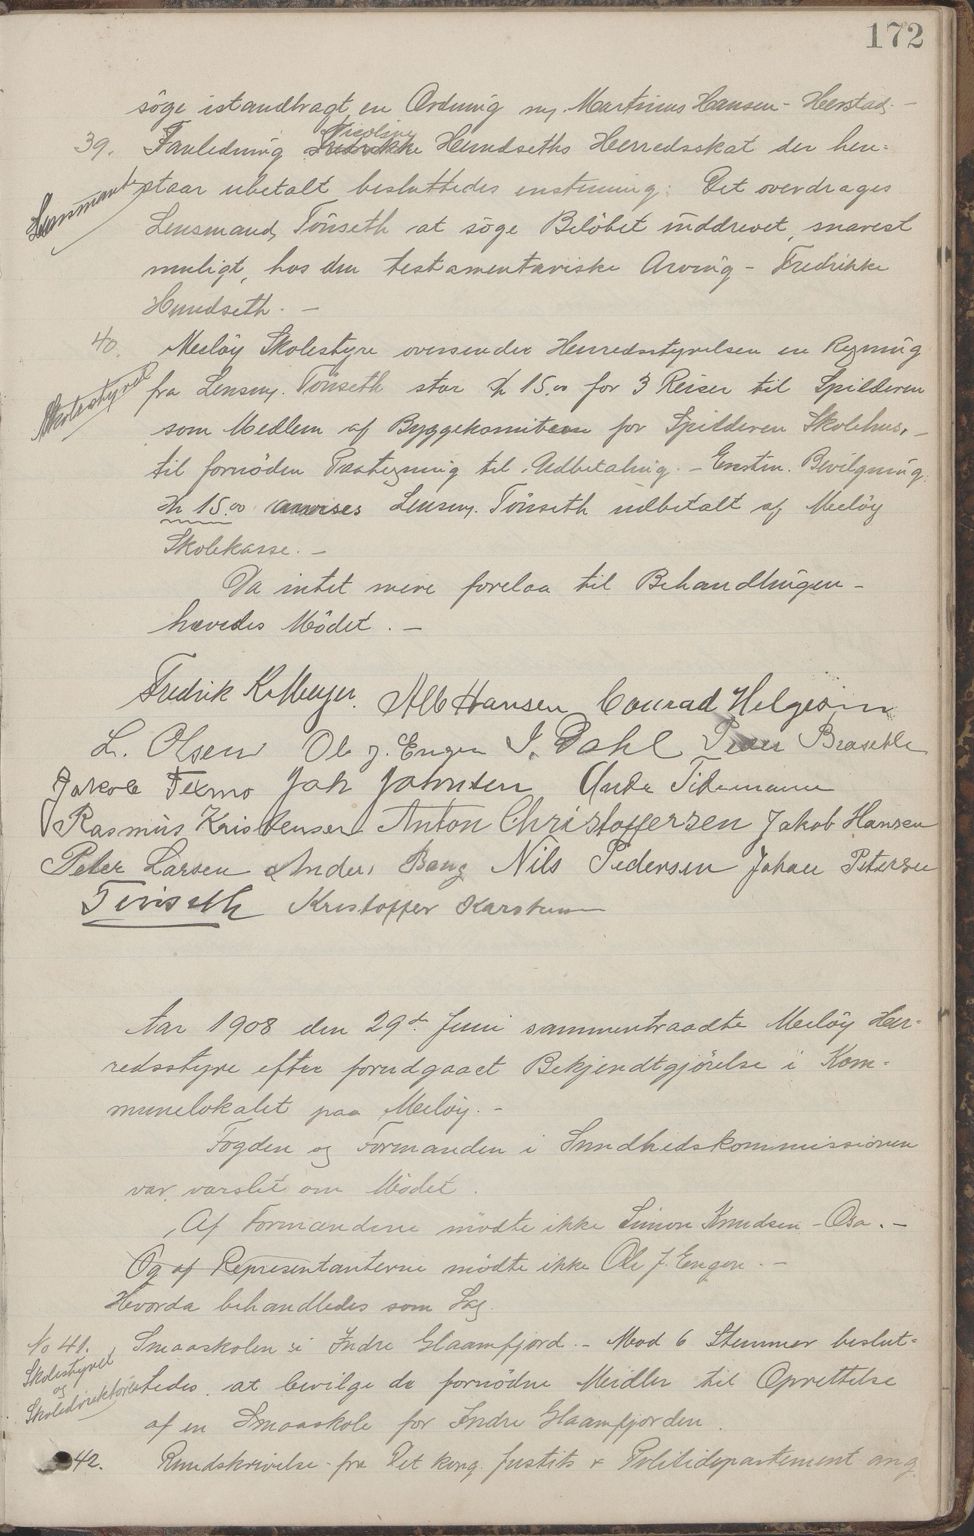 172
søge istandbragt en Ordning m/ Martinus Hansen - Herstad. -
39. I anledning Nicoline Hundseths Herredsskat der hen-
Lensmand staar ubetalt besluttedes enstemmig: Det overdrages
Lensmand Tönseth at søge Beløbet inddrevet, snarest
muligt, hos den testamentariske Arving - Fredrikke
Hundseth. -
40. Meløy Skolestyre oversender Herredsstyrelsen en Regning
Skolestyret fra Lensm. Tönseth stor Kr 15.00 for 3 Reiser til Spilderen
som Medlem af Byggekomiteen for Spilderen Skolehus, -
til fornøden Paategning til Udbetaling. - Enstm. Bevilgning
Kr 15.00 anvises Lensm. Tönseth udbetalt af Meløy
Skolekasse. -
Da intet mere forelaa til Behandlingen -
hævedes Mødet. -
Fredrik K. Meyer. Alb Hansen Conrad Helgesen
L. Olsen Ole J. Engen I. Dahl Peder Brasetble
Jakob Texmo Joh Johnsen Ande Tidemann
Rasmus Kristensen Anton Christoffersen Jakob Hansen
Peter Larsen Anders Bang Nils Pedersen Johan Petersen
Tönseth Kristoffer Karstensen
Aar 1908 den 29de Juni sammentraadte Meløy Her-
redsstyre efter forudgaaet Bekjendtgjørelse i Kom-
munelokalet paa Meløy. -
Fogden og Formanden i Sundhedskommissionen
var varslet om Mødet.
Af Formændene mødte ikke Simon Knudsen - Osa. -
Og af Representanterne mødte ikke Ole J. Engen. -
Hvorda behandledes som Sag.
No 41. Smaaskolen i Indre Glaamfjord. - Mod 6 Stemmer beslut-
Skolestyret og Skoledirektøren tedes at bevilge de fornødne Midler til Oprettelse
af en Smaaskole for Indre Glaamfjorden.
42. Rundskrivelse fra Det kong. Justits & Politidepartement ang.